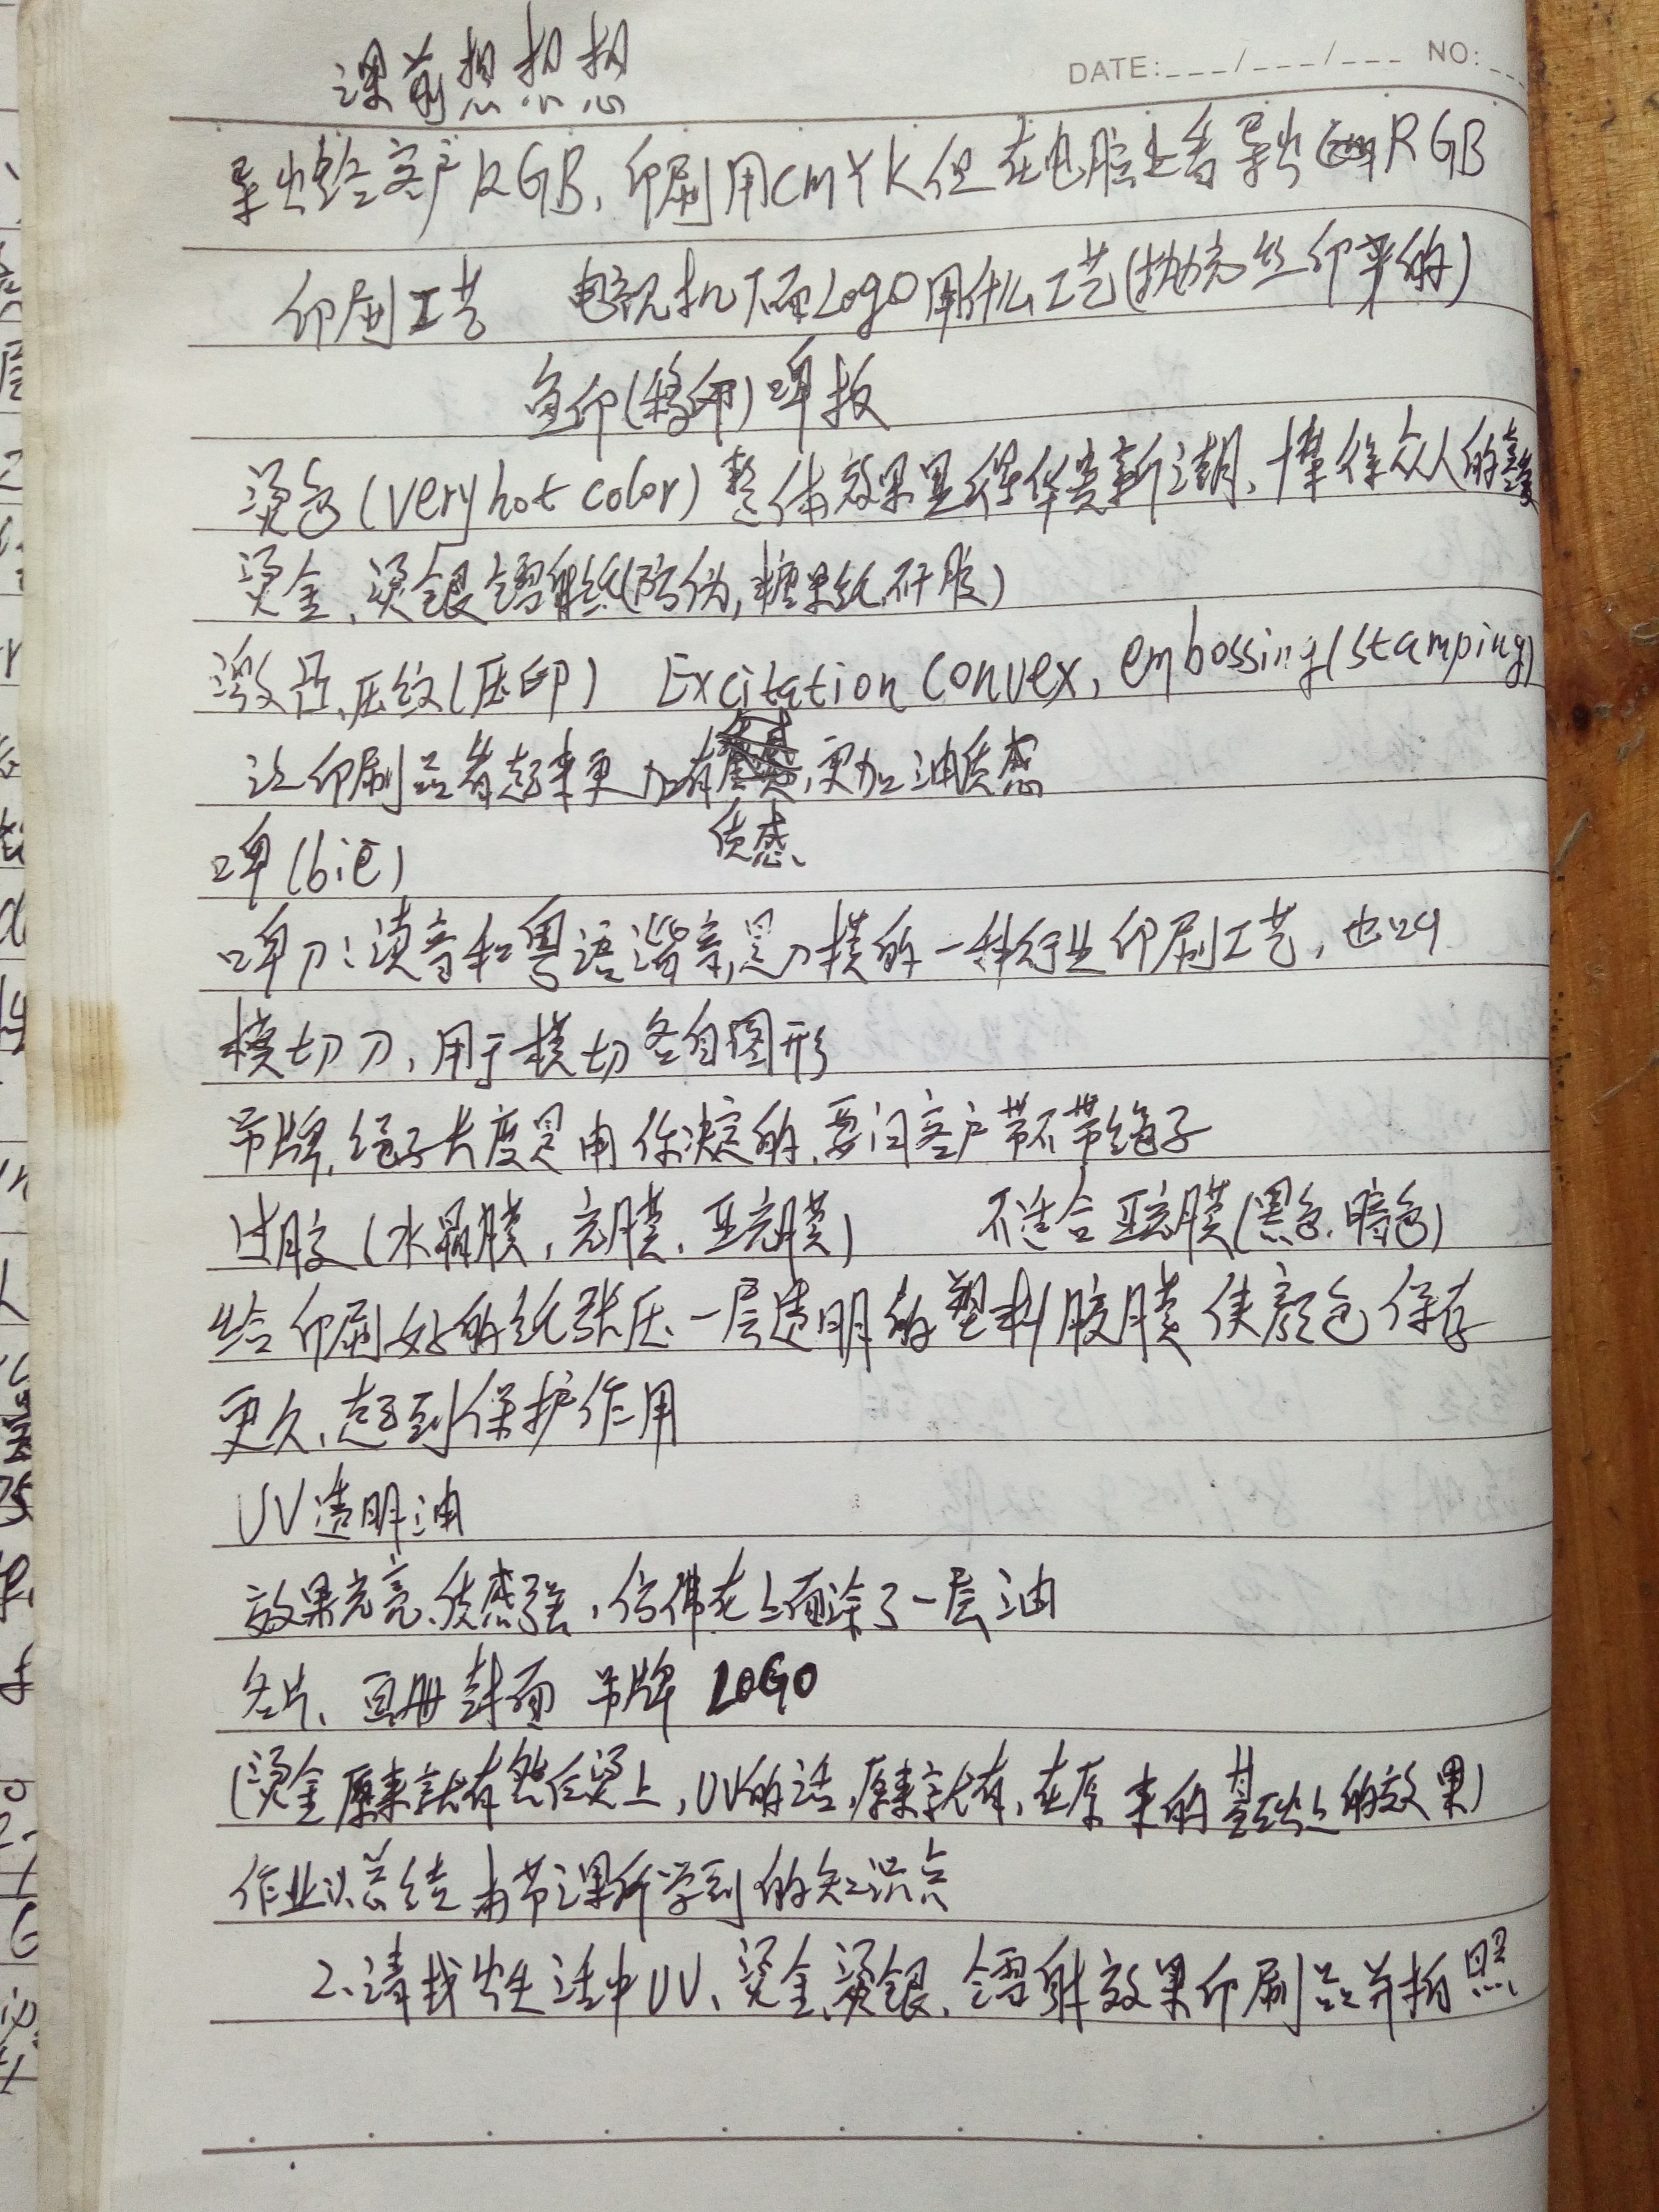 课前想想想
DATE:___/___/___ NO:__
导出给客户RGB,印刷用CMYK但在电脑上看导出RGB
印刷工艺 电视机下面Logo用什么工艺(抛光丝印来的)
鱼印(移印)啤板
烫色(very hot color)整体效果显得华贵新潮、博得众人的喜爱
烫金、烫银镭射纸(防伪,糖果纸、不干胶)
激凸、压纹(压印) Excitation convex, embossing(stamping)
让印刷品看起来更加有,更加油质感
质感、
啤(biē)
啤刀:读音和粤语谐音,是刀模的一种行业印刷工艺,也叫
模切刀,用于模切各自图形
吊牌,绳子长度是由你决定的,要问客户带不带绳子
过胶(水晶膜,亮膜、亚亮膜) 不适合亚亮膜(黑色、暗色)
给印刷好的纸张压一层透明的塑料胶膜使颜色保存
更久、起到保护作用
UV透明油
效果光亮、质感强,仿佛在上面涂了一层油
名片、画册封面 吊牌 LOGO
(烫金原来就有然后烫上,UV的话,原来就有,在原来的基础上的效果)
作业:1、总结本节课所学到的知识点
2、请找出生活中UV、烫金、烫银、镭射效果印刷品并拍照